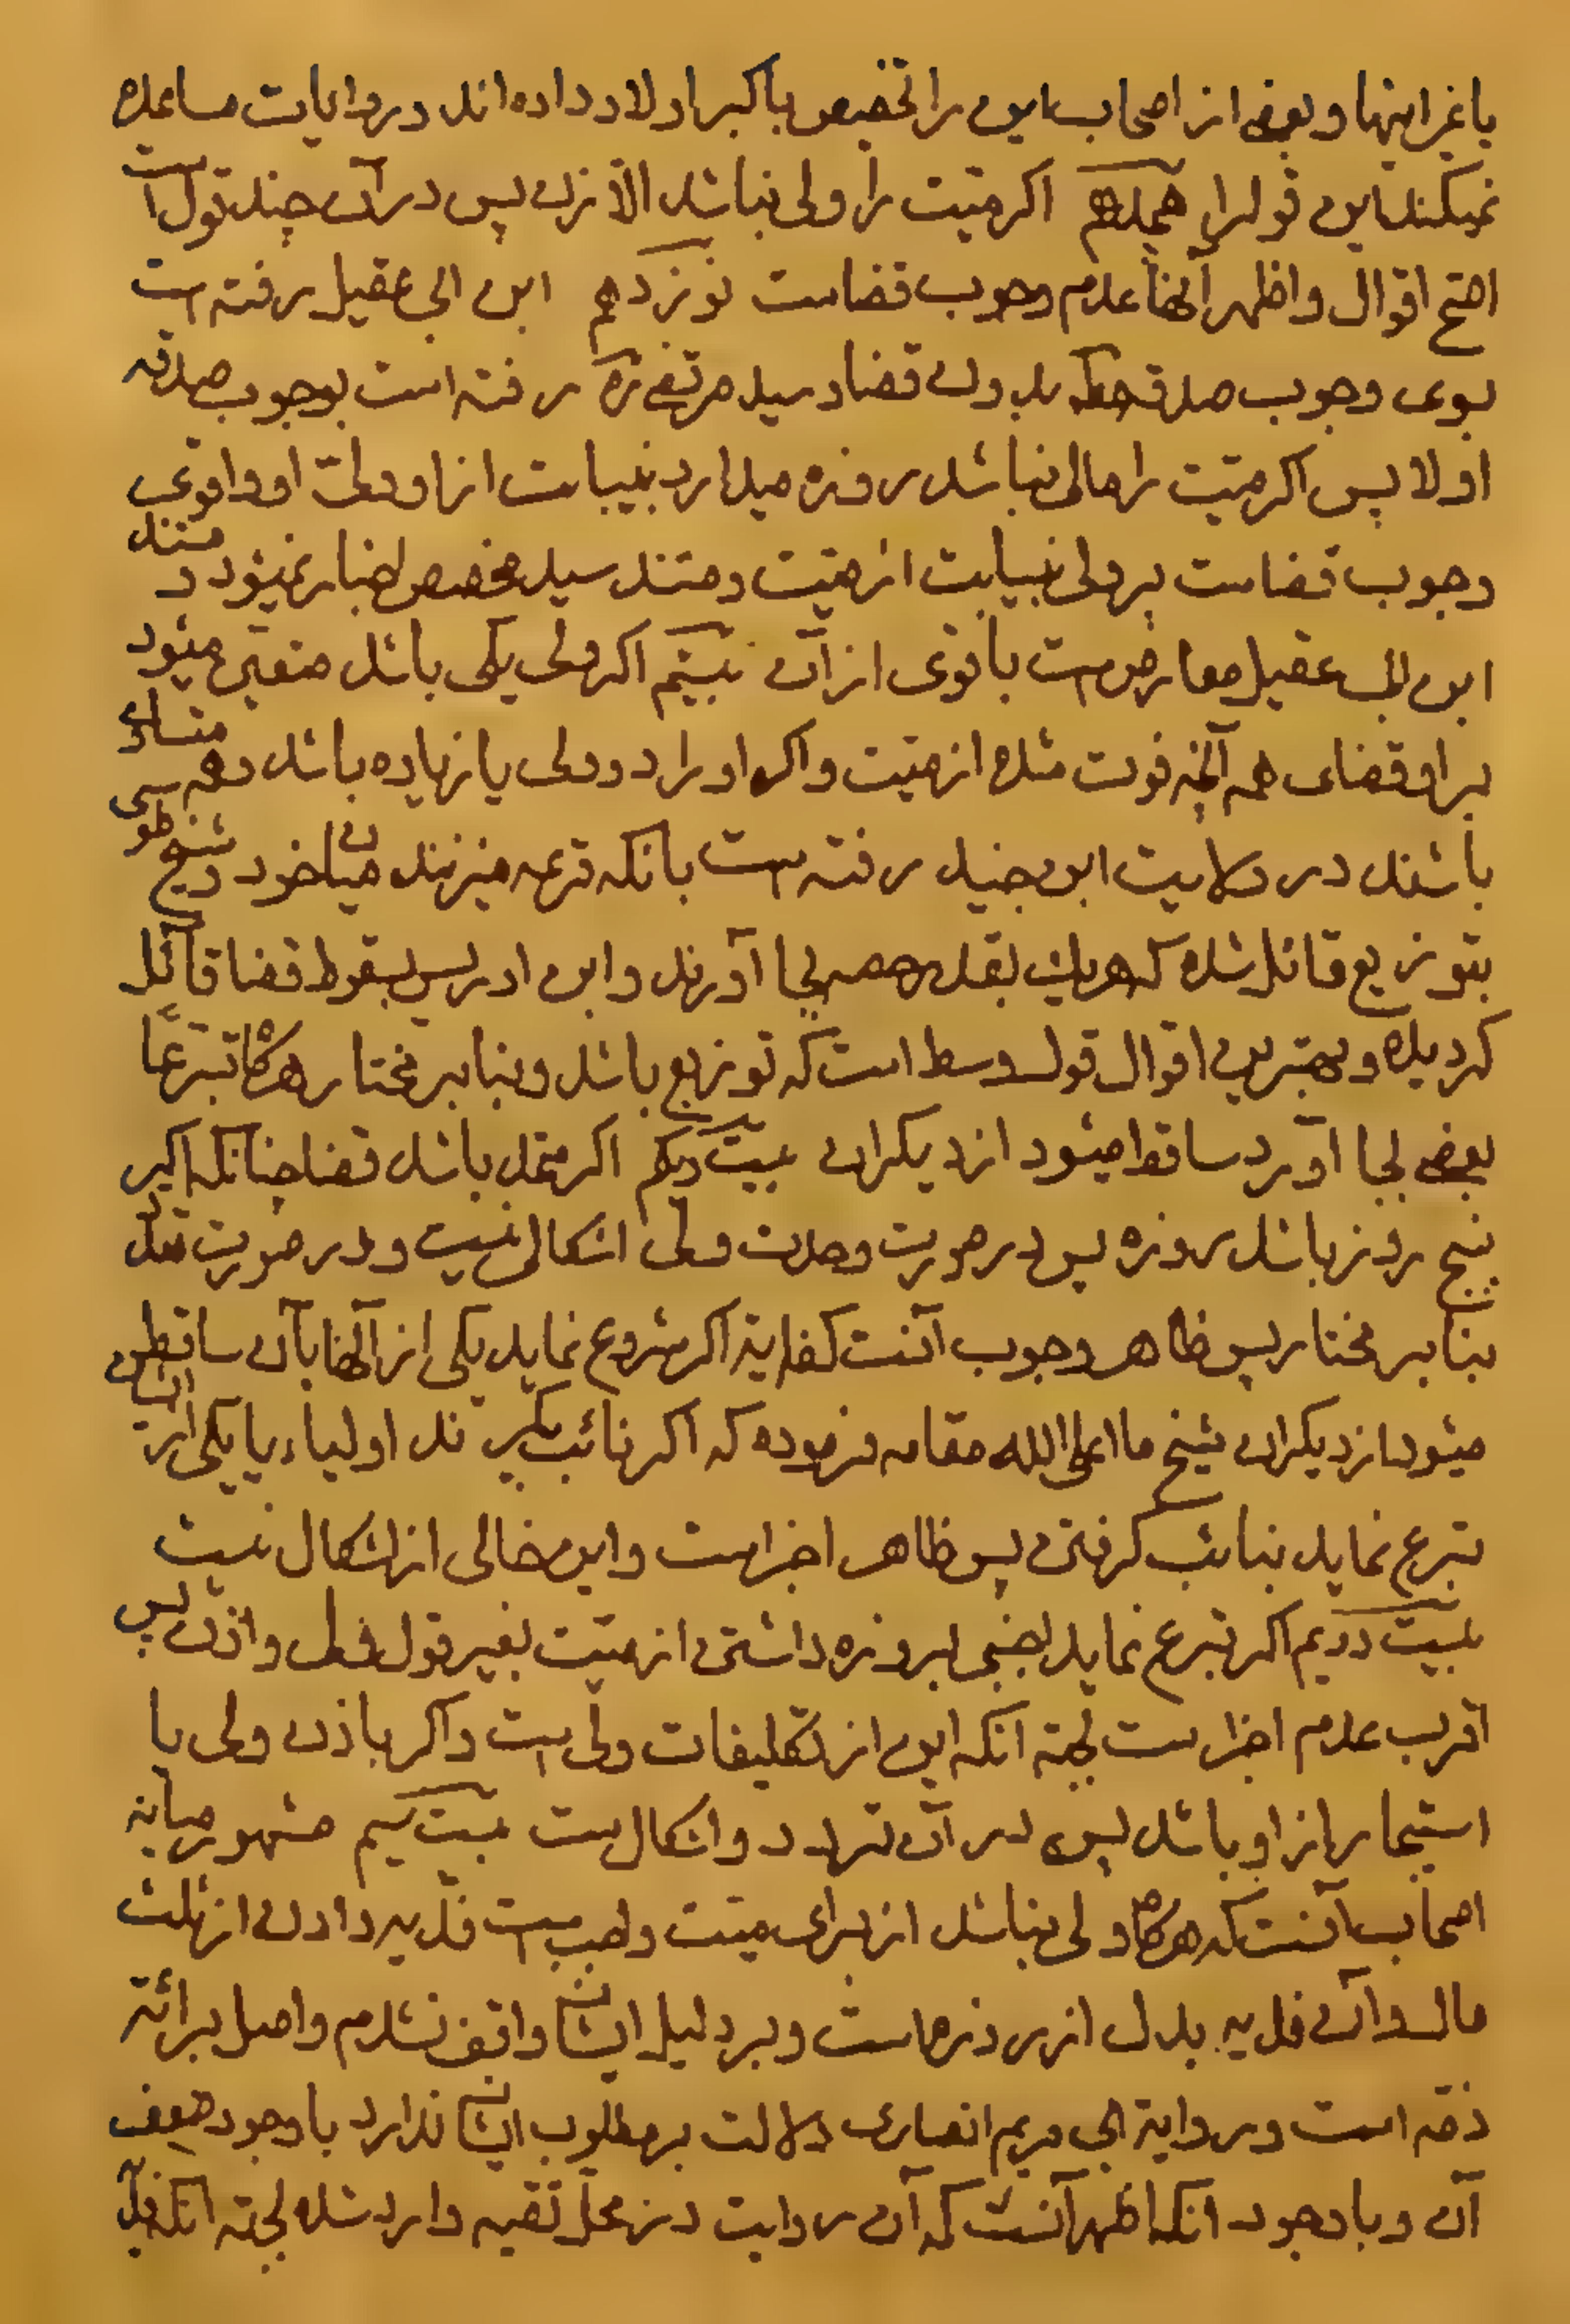 یا غیر اینها و بعضی از اصحاب این را تخصیص باکبر اولاد داده اند و روایات مساعده
نمیکند این قول را هیجدهم اکر میّت را ولی نباشد الاّ زن پس در آن چند قول است
اصّح اقوال و اظهر آنها عدم وجوب قضاست نوزدهم ابن ابی عقیل رفته است
بوی وجوب صدقه بدون قضا و سید مرتضی ره رفته است بوجوب صدقه
اولا پس اکر میّت را مالی نباشد روزه میدارد بنیابت از او ولیّ او و اقوی
وجوب قضاست بر ولی بنیابت از میّت و مستند سید مخصص اخبار نمیشود و مستند
ابن ابی عقیل معارض است با قوی از آن بیستم اکر ولی یکی باشد متعیّن میشود
بر او قضای همه آنچه فوت شده از میّت و اکر او را دو ولی یا زیاده باشد و همه متساوی
باشند در ولایت ابن جنید رفته است بانکه قرعه میزنند میان خود و شیخ طوسی
بتوزیع قائل شده که هر یک بقدر حصه بجا آورند و ابن ادریس بسقوط قضا قائل
کردیده و بهترین اقوال قول وسط است که توزیع باشد و بنابر مختار هرکاه تبرّعاً
بعضی بجا آورد ساقط میشود از دیکران بیست و یکم اکر متحد باشد قضا چنانکه اکبر
پنج روز باشد روزه پس در صورت وحدت ولی اشکالی نیست و در صورت تعدّد
بنابر مختار پس ظاهر وجوب آنست کفایة اکر شروع نماید یکی از آنها بآن ساقط
میشود از دیکران شیخ ما اعلی الله مقامه فرموده که اکر نائب بکیرند اولیاء یا یکی از ایشان
تبرع نماید بنائب کرفتن پس ظاهر اجزاست و این خالی از اشکال نیست
بیست دویم اکر تبرع نماید اجنبی بروزه داشتن از میّت بغیر قول ولی و اذن پس
اقرب عدم اجزاست لجهة انکه این از تکلیفات ولی است و اکر باذن ولی یا
استیجار از او باشد پس در آن تردد و اشکال است بیست سیم مشهور میانه
اصحاب آنست که هرکاه ولی نباشد از برای میّت واجب است فدیه دادن از ثلث
مال و آن فدیه بدل از روزهاست و بر دلیل ایشان واقف نشدم و اصل برائة
ذمّه است و روایة ابی مریم انصاری دلالت بر مطلوب ایشان ندارد با وجود ضعف
آن و با وجود انکه اظهر آنست که آن روایت در محلّ تقیه وارد شده لجهة انکه